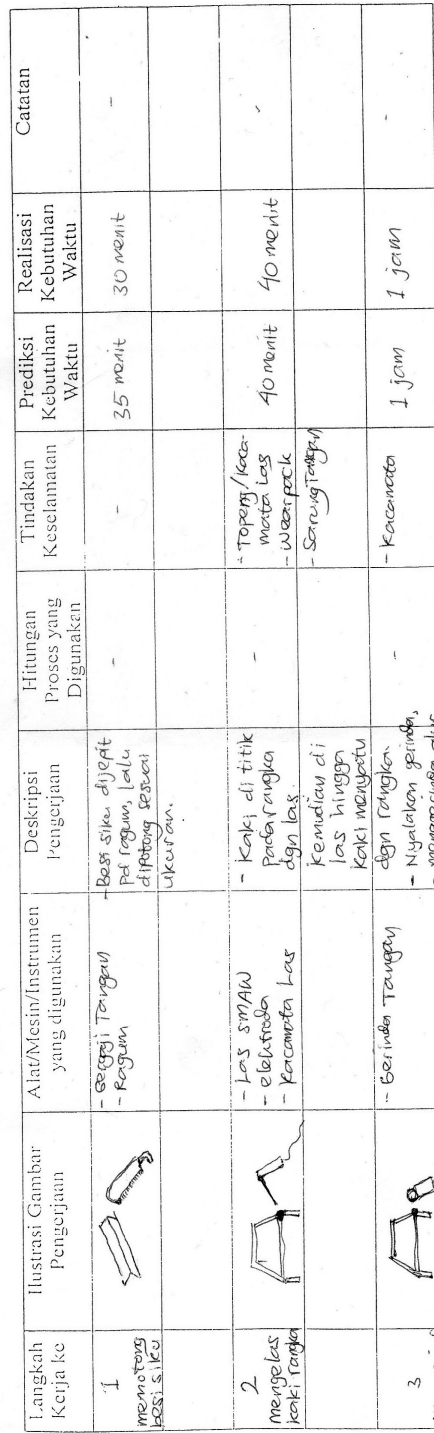 Langkah
Kerja ke
Ilustrasi Gambar
Pengerjaan
Alat/Mesin/Instrumen
yang digunakan
Deskripsi
Pengerjaan
Hitungan
Proses yang
Digunakan
Tindakan
Keselamatan
Prediksi
Kebutuhan
Waktu
Realisasi
Kebutuhan
Waktu
Catatan
1
memotong
besi siku
- Gergaji Tangan
- Ragum
- Besi siku dijepit
pd ragum, lalu
dipotong sesuai
ukuran.
-
-
35 menit
30 menit
-
2
mengelas
kaki rangka
- Las SMAW
- elektroda
- Kacamata Las
- Kaki di titik
pada rangka
dgn las.
Kemudian di
las hingga
kaki menyatu
dgn rangka.
-
- Topeng/Kaca-
mata Las
- Wearpack
- Sarung Tangan
40 menit
40 menit
-
3
- Gerinda Tangan
- Nyalakan gerinda,
-
- Kacamata
1 jam
1 jam
-